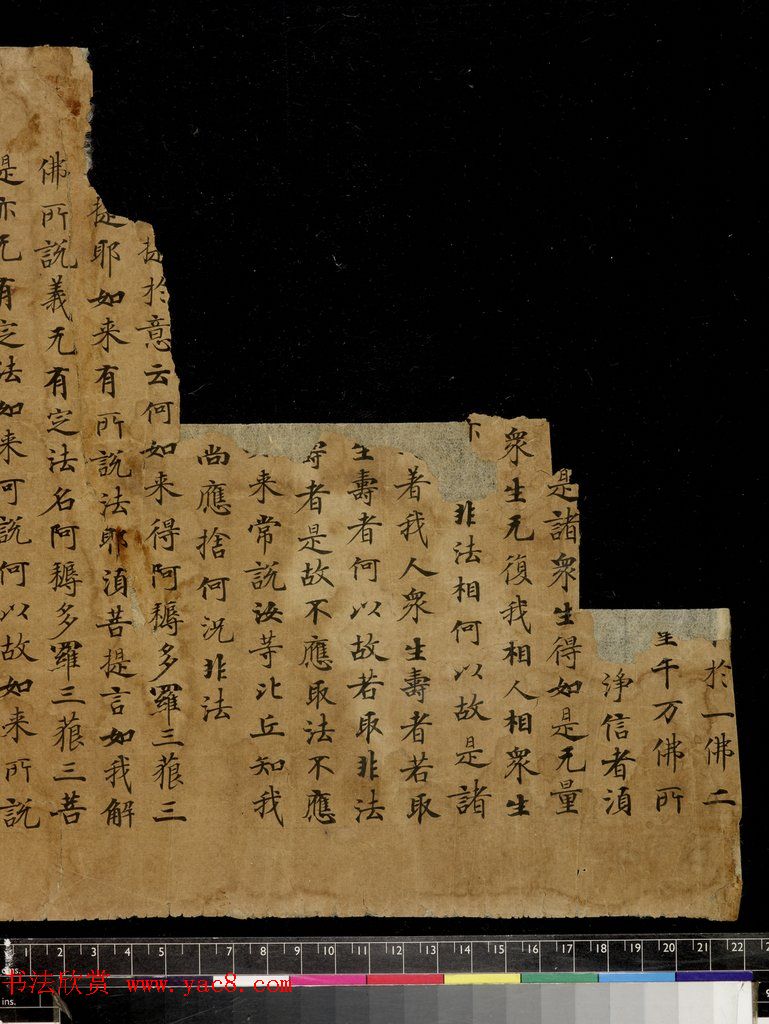 於一佛二
千万佛所
淨信者湏
是諸衆生得如是无量
衆生无復我相人相衆生
非法相何以故是諸
著我人衆生壽者若取
生壽者何以故若取非法
者是故不應取法不應
来常說汝等比丘知我
尚應捨何況非法
提於意云何如来得阿耨多羅三藐三
提耶如来有所說法耶湏菩提言如我解
佛所說義无有定法名阿耨多羅三藐三菩
是亦无有定法如来可說何以故如来所說
cms. 1 2 3 4 5 7 8 9 10 11 12 13 14 15 16 17 18 19 20 21 22
书法欣赏 www.yac8.com
ins.